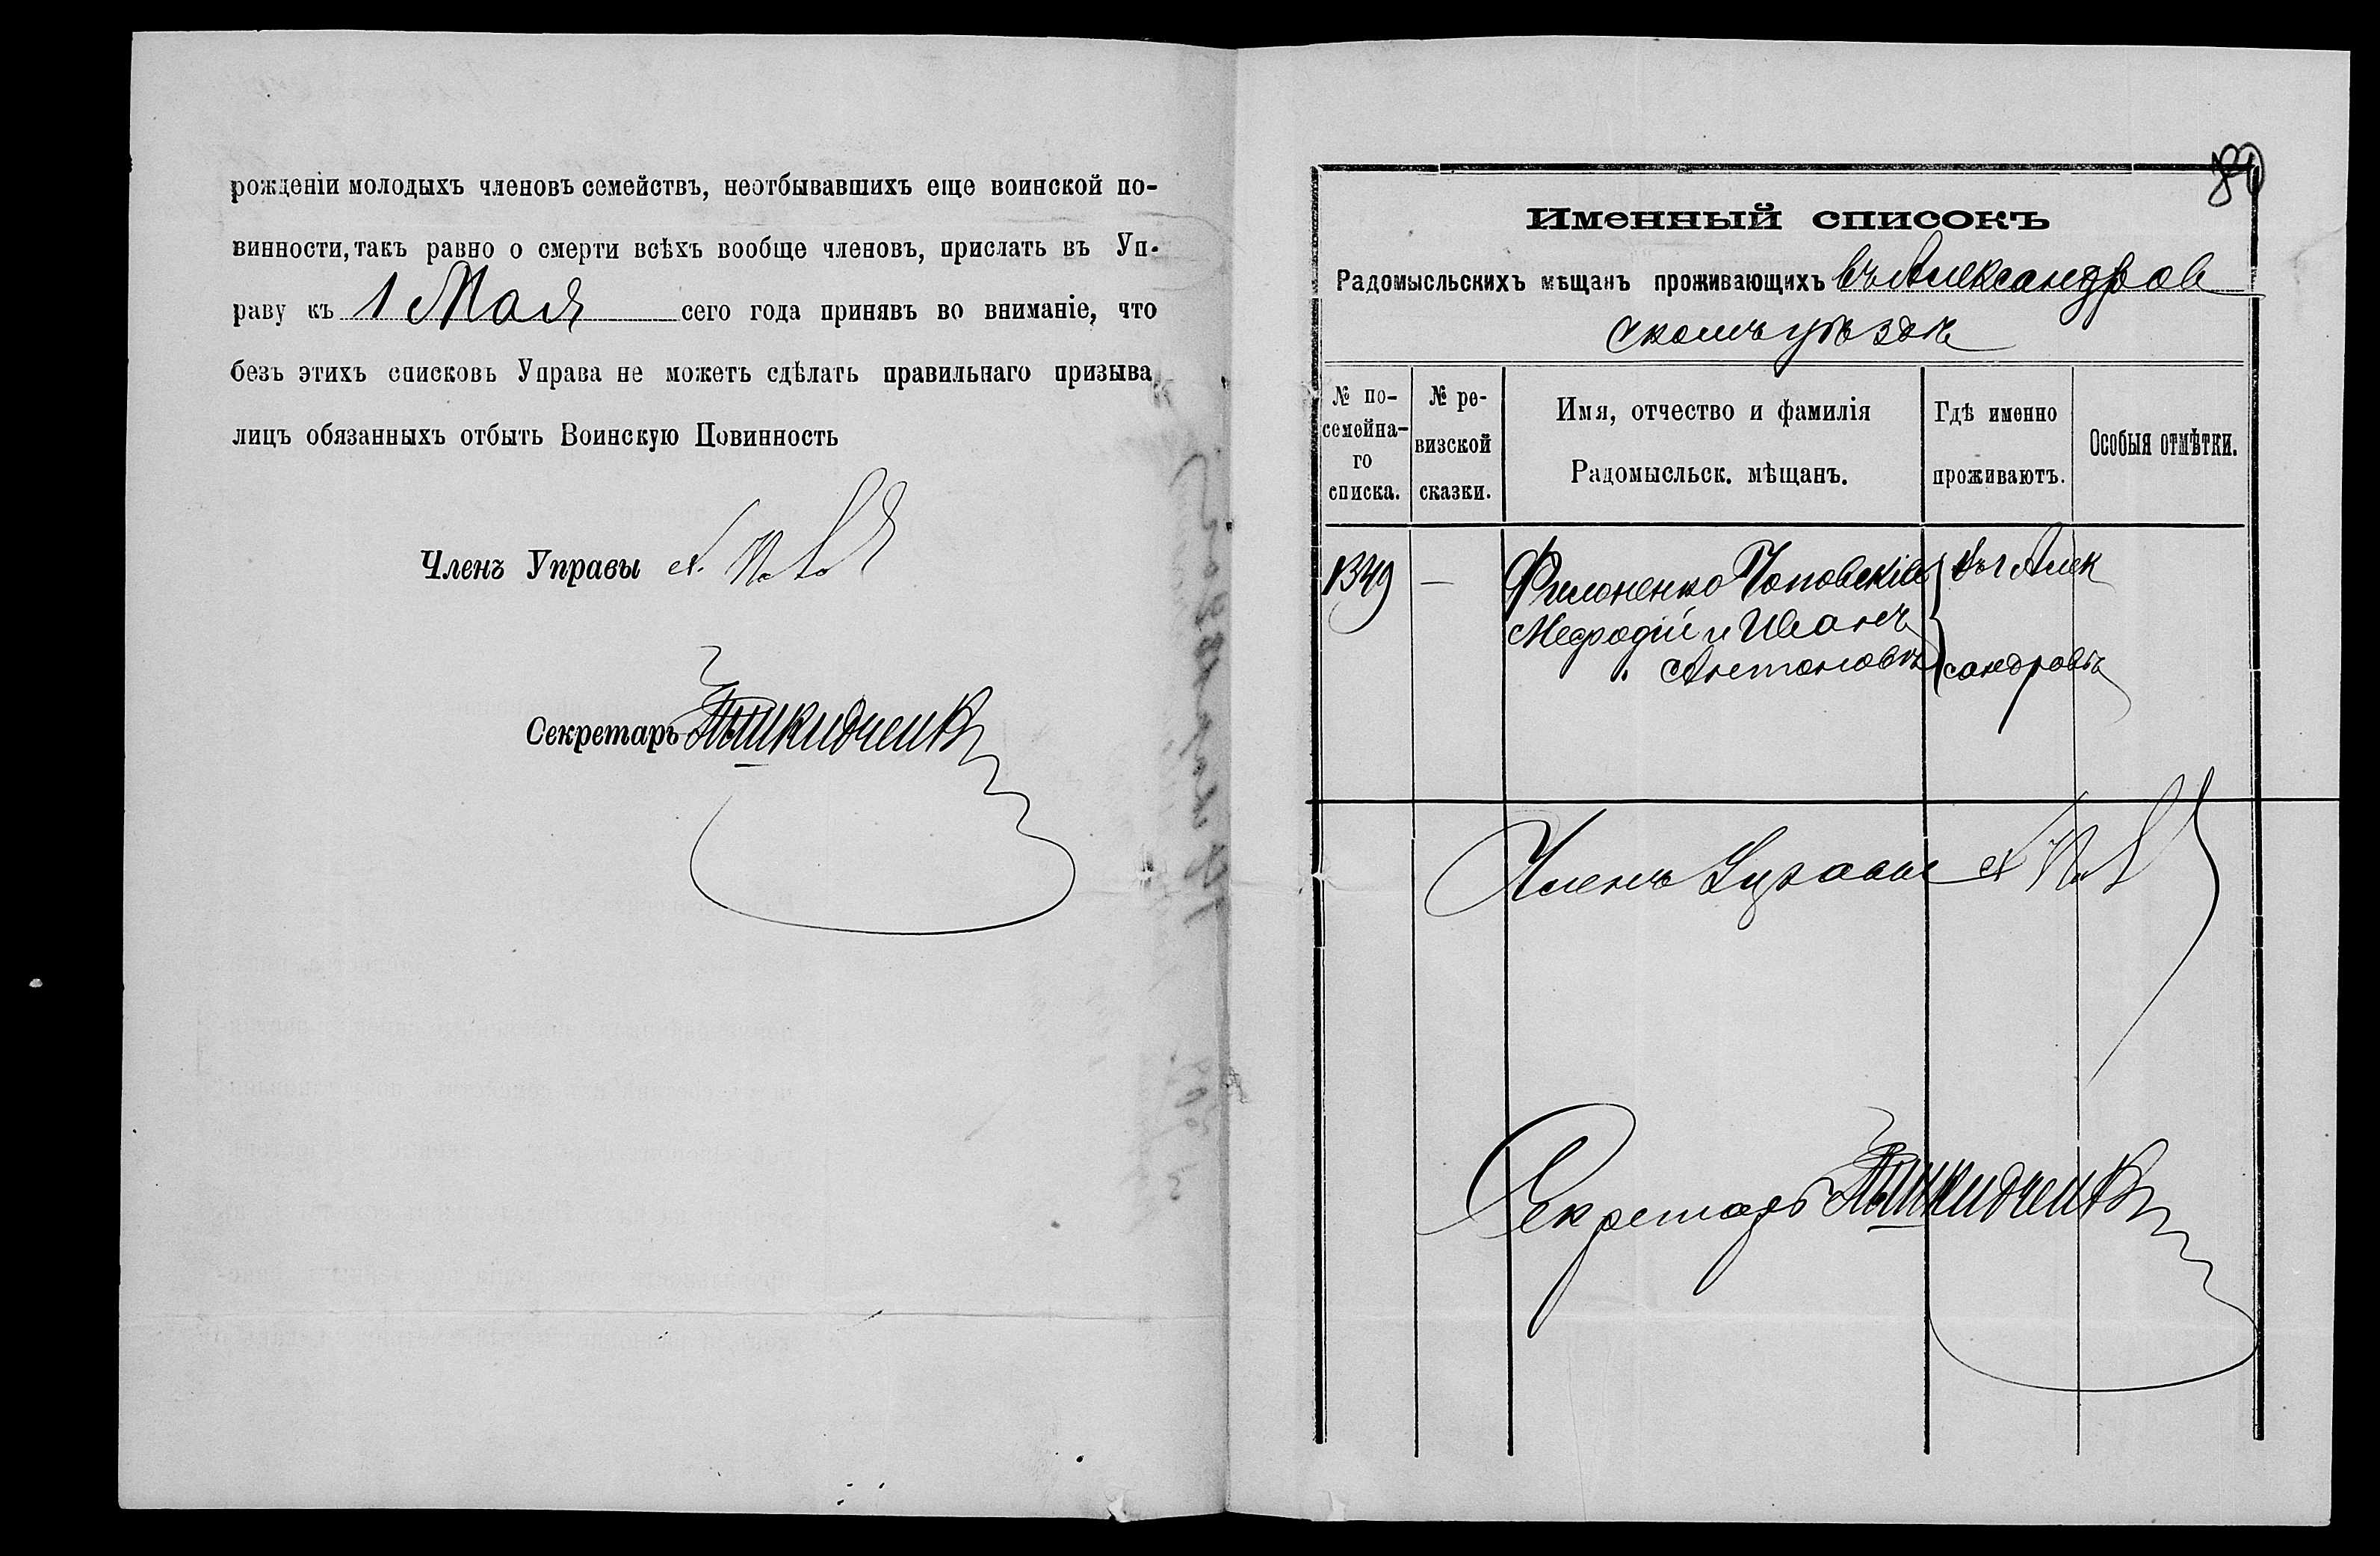 рожденіи молодыхъ членовъ семействъ, неотбывавшихъ еще воинской по-
винности, такъ равно о смерти всѣхъ вообще членовъ, прислать въ Уп-
раву къ 1 Мая сего года принявъ во вниманіе, что
безъ этихъ списковъ Управа не можетъ сдѣлать правильнаго призыва
лицъ обязанныхъ отбыть Воинскую Повинность
Членъ Управы
Секретарь
Именный списокъ
Радомысльскихъ мѣщанъ проживающихъ въ Александров
скомъ уѣздѣ
№ по-
семейна-
го
списка.
№ ре-
визской
сказки.
Имя, отчество и фамилія
Радомысльск. мѣщанъ.
Гдѣ именно
проживаютъ.
Особыя отмѣтки.
1349
—
Филоненко
Мефодій и Иванъ
Антоновы
въ г Алек
сандровѣ
Членъ Управы
Секретарь